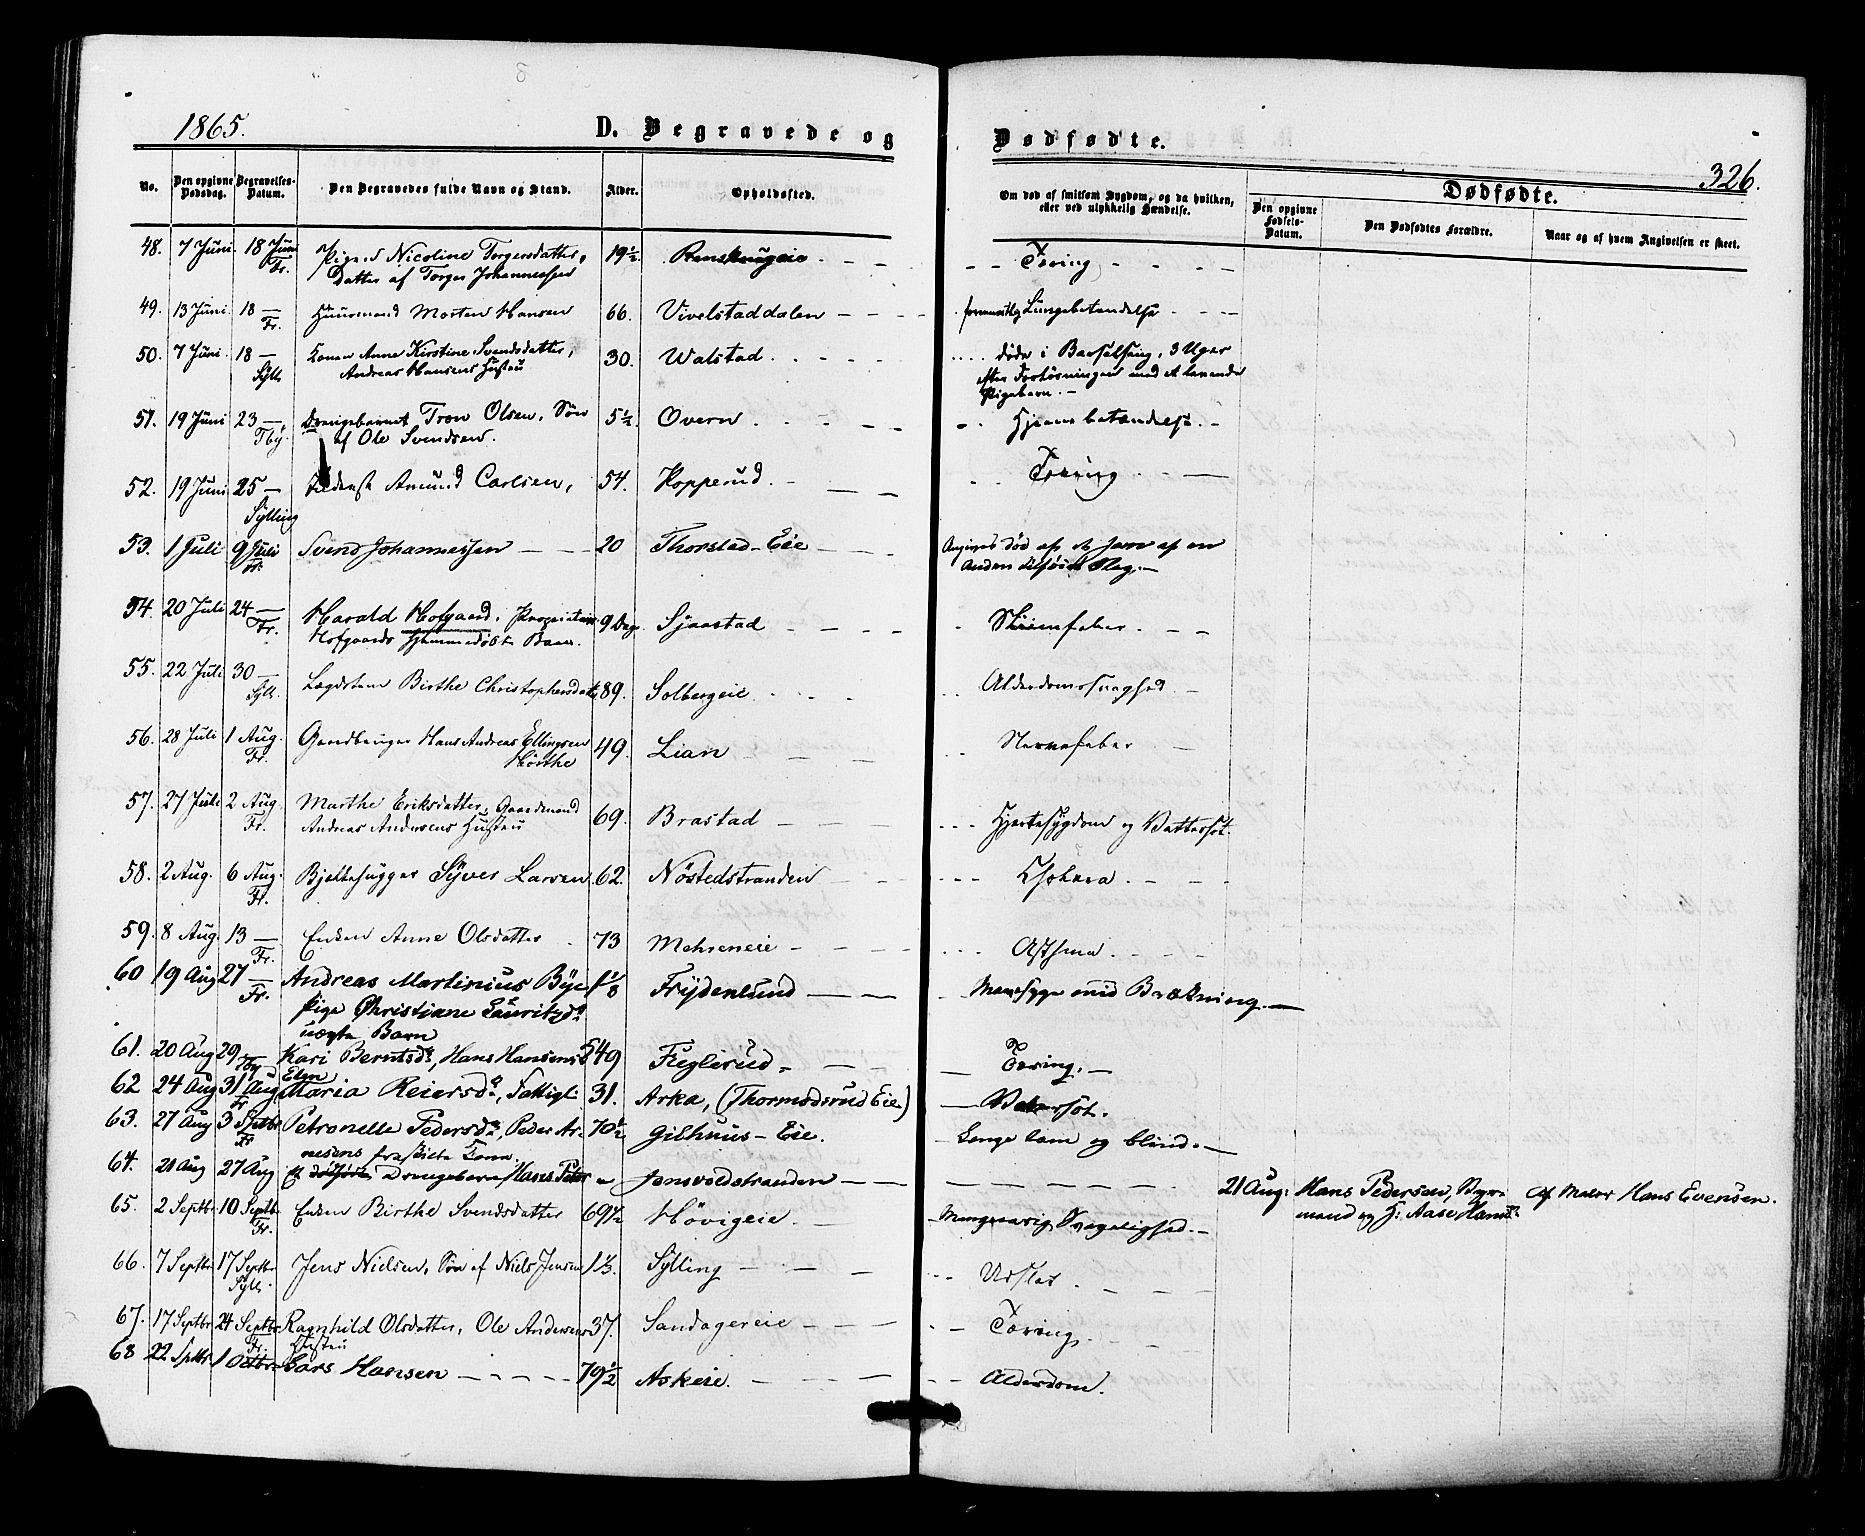 1865.
D. Begravede og
Dødfødte.
326.
No.
Den opgivne Dødsdag.
Begravelses-Datum.
Den Begravedes fulde Navn og Stand.
Alder.
Opholdssted.
Om død af smitsom Sygdom, og da hvilken, eller ved ulykkelig Hændelse.
Dødfødte.
Den opgivne Fødsels-Datum.
Den Dødfødtes Forældre.
Naar og af hvem Angivelsen er skeet.
48. 7 Juni 18 Juni Fr. Pigen Nicoline Torgersdatter, 19 1/2 — — Tæring — — — —
Datter af Torger Johannessen
49. 13 Juni 18 — Fr. Huusmand Morten Hansen 66. Vivelstaddalen — — — — Lungebetændelse — — —
50. 7 Juni 18 — Syll. Konen Anne Kirstine Svendsdatter, 30. Walstad døde i Barselseng, 3 Uger
Andreas Hansens Hustru efter Forløsningen med et levende
Pigebarn. —
51. 19 Juni 23 — Tbÿ. Drengebarnet Tron Olsen, Søn 5 1/2 Overn — — Hjernebetændelse. —
af Ole Svendsen.
52. 19 Juni 25 — Sylling Amund Carlsen, 54. Hopperud — — Tæring — —
53. 1 Juli 9 Juli Fr. Svend Johannessen — — — 20 Thorstad-Eie — — Angives død af et af en
Anden tilføiet Slag. —
54. 20 Juli 24 — Fr. Harald Hofgaard, Proprietair 9 Dage Sjaastad — — —
Hofgaards hjemmedøbte Barn.
55. 22 Juli 30 — Syll. Lægdslem Birthe Christophersdatter 89. Solbergeie Alderdomssvaghed —
56. 28 Juli 1 Aug. Fr. Gaardbruger Hans Andreas Ellingsen 49. Lian Nervefeber —
Hørthe
57. 27 Juli 2 Aug. Fr. Marthe Eriksdatter, Gaardmand 69. Brastad — — — Hjertesygdom og Vattersot.
Andreas Andersens Hustru
58. 2 Aug. 6 Aug. Fr. Bjelkehugger Syver Larsen 62. Nøstedstranden — — Cholera — — —
59. 8 Aug. 13 — Fr. Enken Anne Olsdatter 73 Mehreneie — — — Asthma — — —
60 19 Aug 27 — Fr. Andreas Martinius Bÿe 1 1/8 Frÿdenlund — — Mavesyge med Brækning. —
Pige Christiane Lauritzdr
uægte Barn
61. 20 Aug 29 — Tbÿ Kari Berntsdr, Hans Hansens 49 Fuglerud — Tæring. —
62 24 Aug 31 Aug Fr Maria Reiersdr, Fattigl. 31. Arka, (Thormodsrud Eie) — Vatersot.
63. 27 Aug 3 Septbr Fr Petronelle Pedersdr, Peder Ar- 70 1/2 Gilhuus-Eie. — Længe lam og blind. —
nesens fraskilte Kone.
64. 21 Aug 27 Aug Et dødfødt Drengebarn Hans Peter Jensvoldstranden — — 21 Aug: Hans Pedersen, af Maler Hans Evensen.
mand og H: Aase Hansdr
65. 2 Septbr 10 Septbr Fr. Enken Birthe Svendsdatter 69 1/2 Høvigeie — Mangeaarig Svagelighed. —
66. 7 Septbr 17 Septbr Sÿll. Jens Nielsen, Søn af Niels Jensen 1 1/3. Sylling — — Udslet
67. 17 Septbr 24 Septbr Fr. Ragnhild Olsdatter, Ole Andersens 37. Sandagereie — — Tæring
Hustru
68 22 Septbr 1 Octbr Lars Hansen — — — — 79 1/2 Askeie. — — — Alderdom.